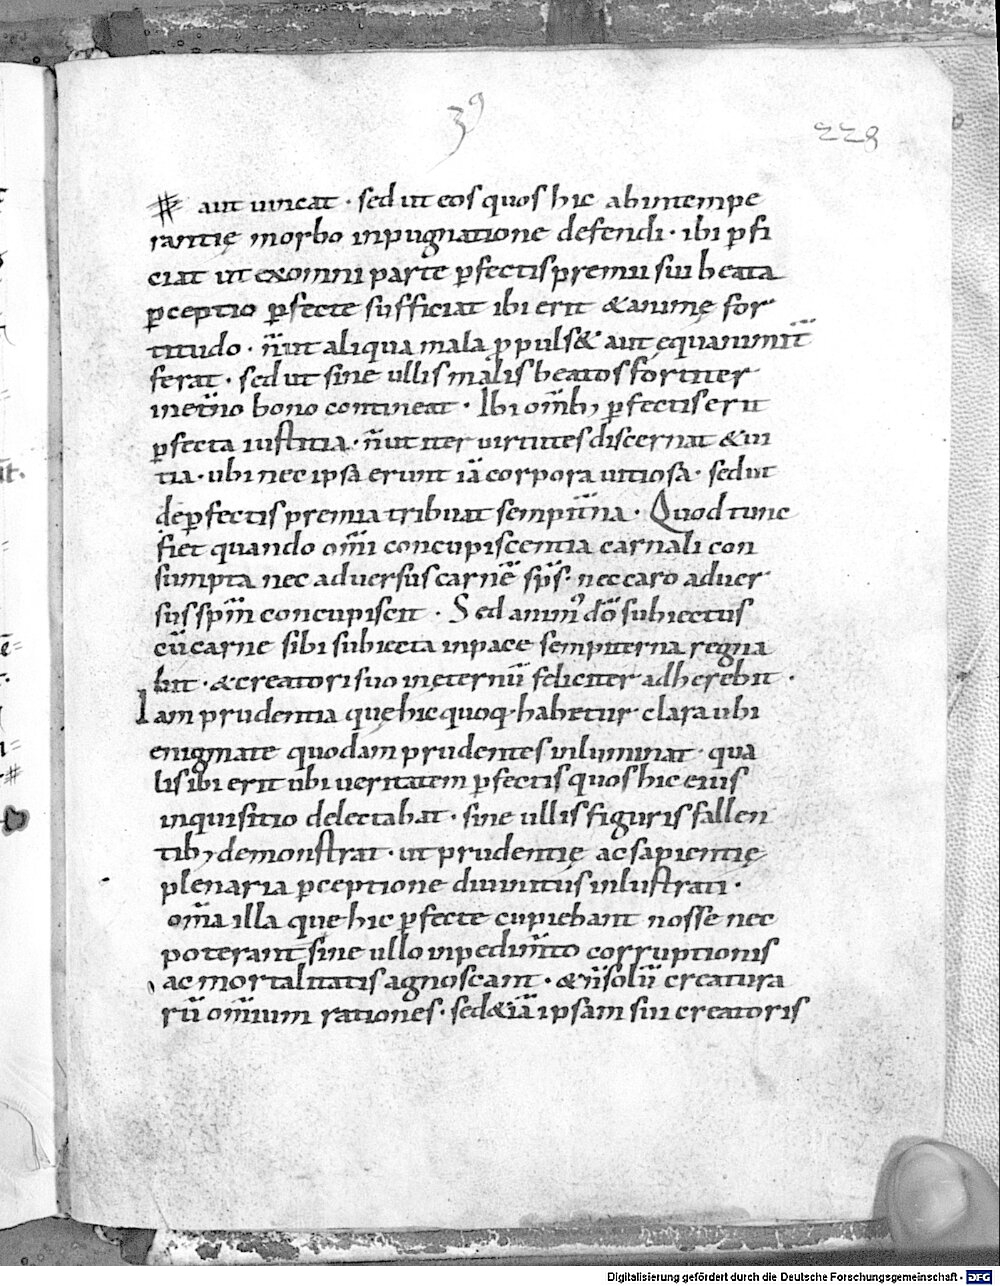 39
228
aut uincat · sed ut eos quos hic ab intempe
rantię morbo inpugnatione defendi · ibi ꝑfi
ciat ut ex omni parte ꝑfectis premii sui beata
ꝑceptio ꝑfecte sufficiat ibi erit & animę for
titudo · n̄ ut aliqua mala ꝓpuls& aut equanimit̄
ferat · sed ut sine ullis malis beatos fortiter
in et̄no bono contineat · Ibi om̄ib; ꝑfectis erit
ꝑfecta iustitia · n̄ ut iter uirtutes discernat & ui
tia · ubi nec ipsa erunt iā corpora uitiosa · sed ut
de ꝑfectis premia tribuat sempit̄na · Quod tunc
fiet quando om̄i concupiscentia carnali con
sumpta nec aduersus carnē sp̄s · nec caro aduer
sus sp̄m concupiscit · Sed animꝰ dō subiectus
cū carne sibi subiecta in pace sempiterna regna
bit · & creatori suo in ęternū feliciter adherebit ·
Iam prudentia quę hic quoq· habetur clara ubi
enigmate quodam prudentes inluminat · qua
lis ibi erit ubi ueritatem ꝑfectis quos hic eius
inquisitio delectabat · sine ullis figuris fallen
tib; demonstrat · ut prudentię ac sapientię
plenaria ꝑceptione diuinitus inlustrati ·
om̄a illa que hic ꝑfecte cupiebant nosse nec
poterant sine ullo inpedim̄to corruptionis
ac mortalitatis agnoscant · & n̄ solū creatura
rū om̄ium rationes · sed & iā ipsam sui creatoris
Digitalisierung gefördert durch die Deutsche Forschungsgemeinschaft - DFG